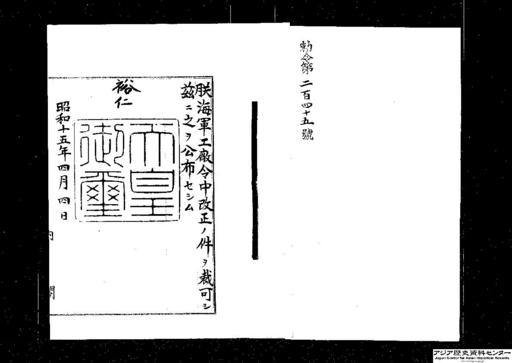 勅令第二百四十五號
朕海軍工廠令中改正ノ件ヲ裁可シ
茲ニ之ヲ公布セシム
裕仁
天皇
御璽
昭和十五年四月四日
内閣
アジア歴史資料センター
Japan Center for Asian Historical Records